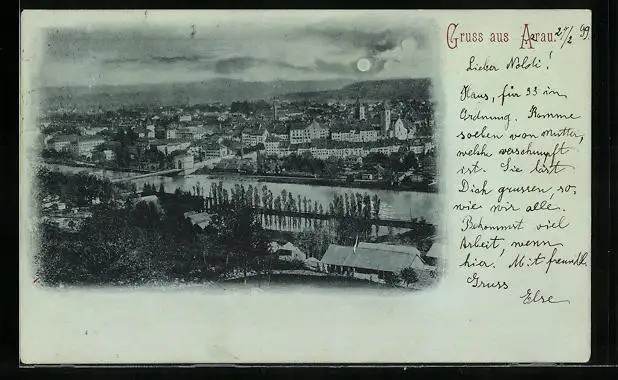 Gruss aus Arau. 2/2 99.
Lieber Noldi!
Haus, für 33 im
Ordnung. Komme
soeben von Mutter,
welche verschnupft
ist. Sie lässt
Dich grüssen, so,
wie wir alle.
Bekommst viel
Arbeit, wenn
hier. Mit freundl.
Gruss
Else